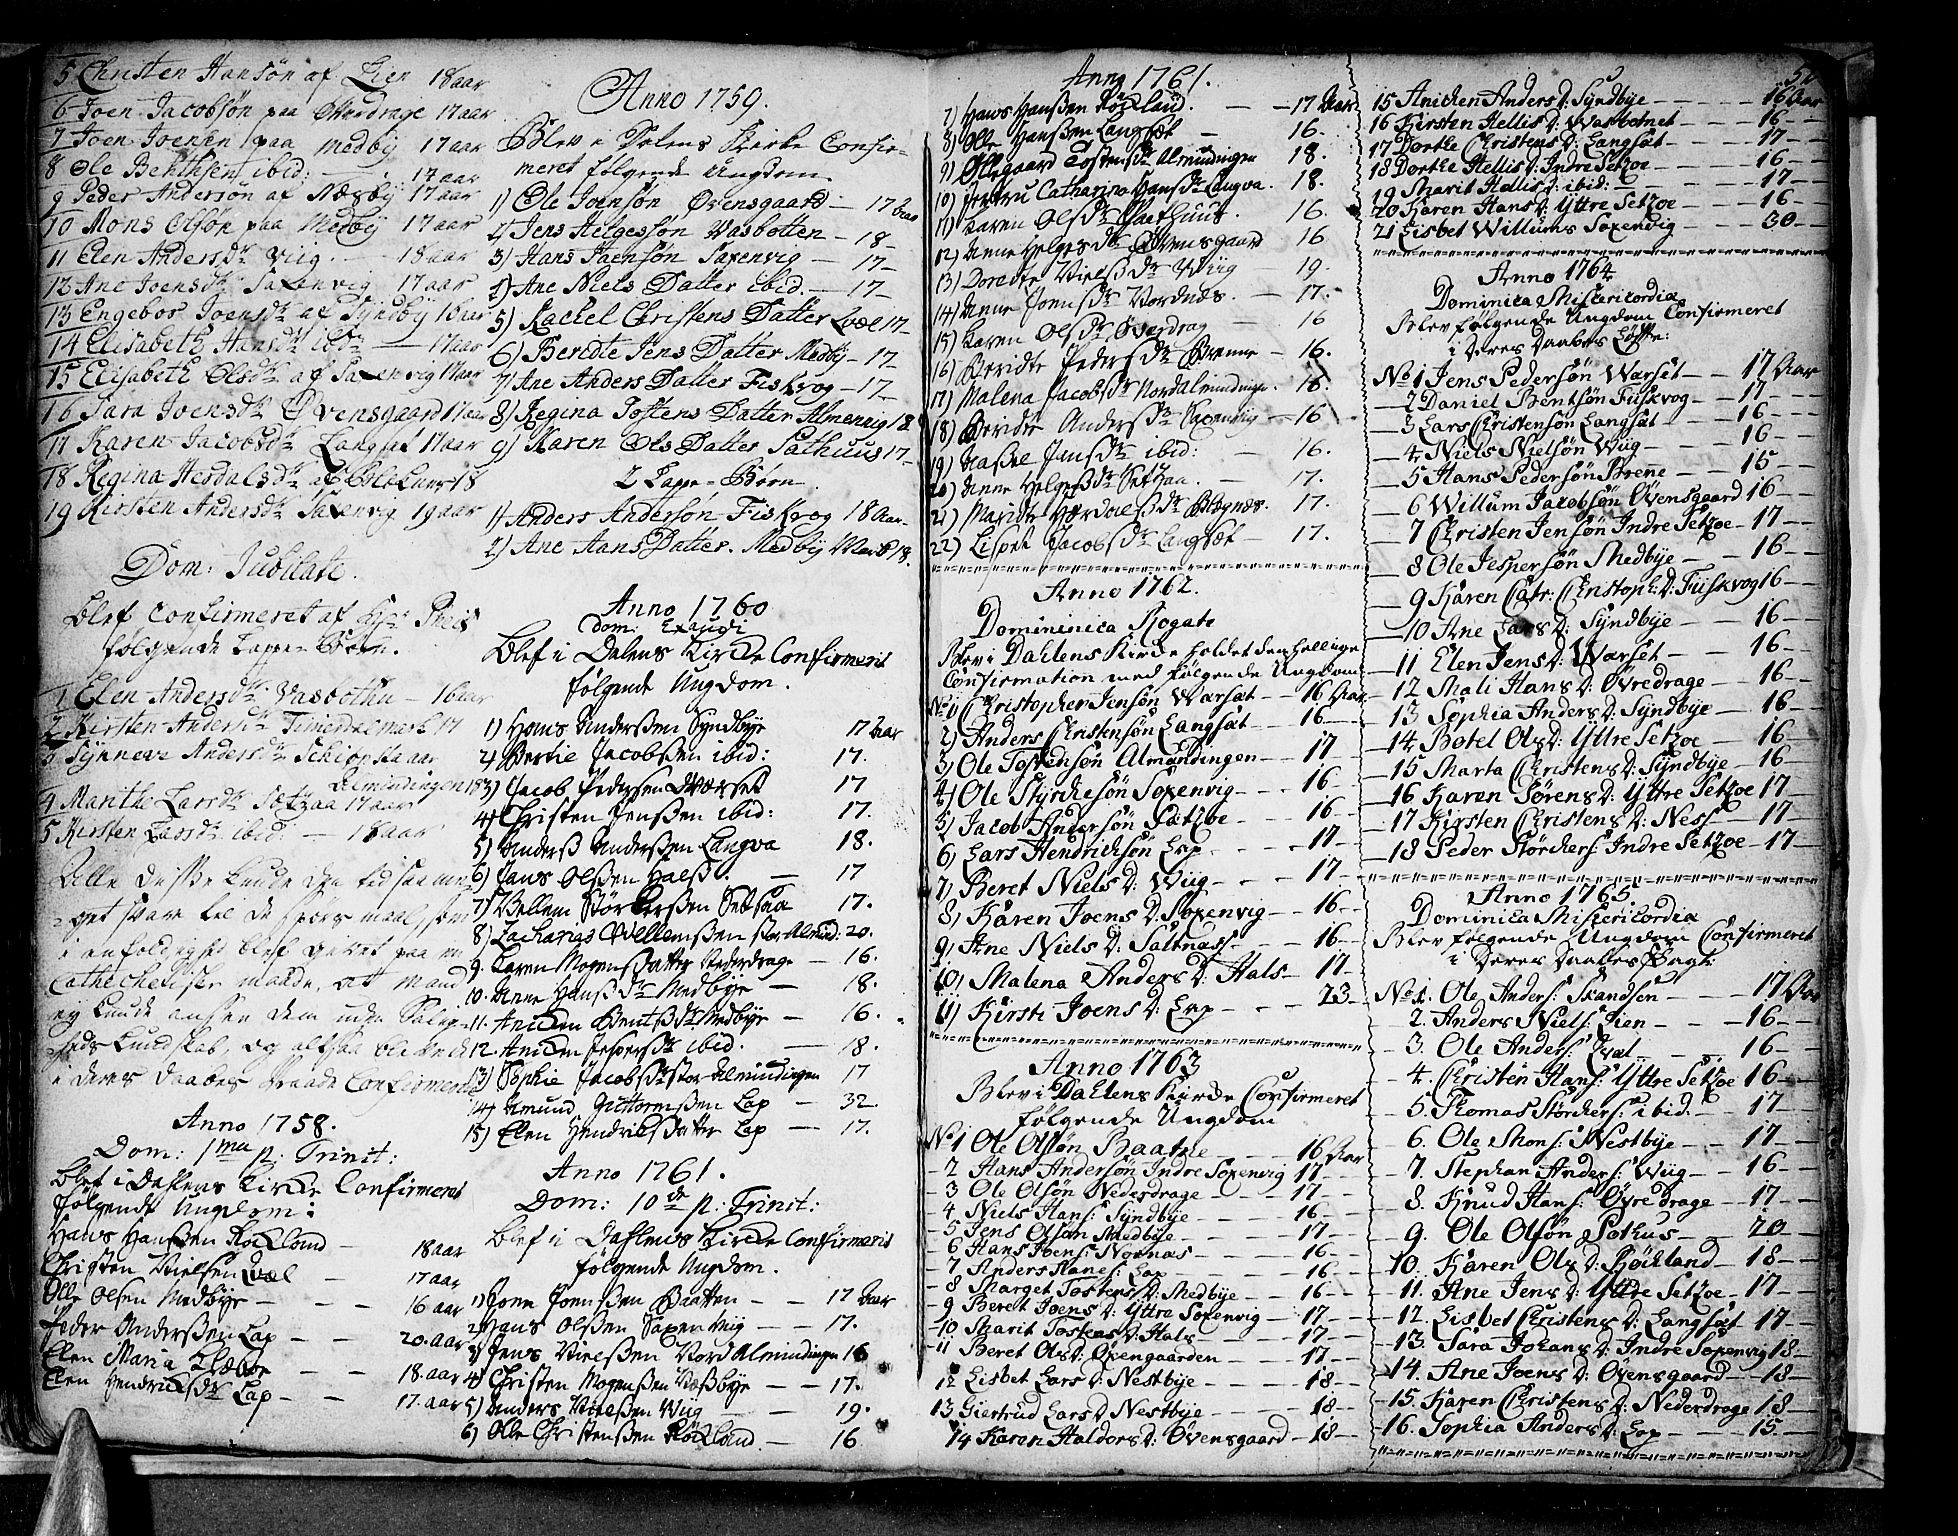 5 Christen Hansøn af Lien 18 aar
6 Joen Jacobsøn paa 17 aar
7 Joen Joensen paa Medby 17 aar
8 Ole Benthsen ibid: 17 aar
9 Peder Andersøn af Næsby 17 aar
10 Mons Olsøn paa Medby 17 aar
11 Elen Andersdr Viig 18 aar
12 Ane Joensdr Saxenvig 17 aar
13 Engebor Joensdr af Syndby 16 aar
14 Elisabeth Hansdr ibid 17 aar
15 Elisabeth Olsdr af Saxenvig 17 aar
16 Sara Joensdr Øvensgaard 17 aar
17 Karen Jacobsdr Langsæt 17 aar
18 Regina af 18
19 Kirsten Andersdr Saxenvig 19 aar
Dom: Jubilate.
Blef confirmeret af Hr:
følgende Lappe Børn.
1 Elen Andersdr Vasbothn - 16 aar
2 Kirsten Andersdr 17
3 Synneve Andersdr aar
Almindingen 18
4 Marithe Larsdr Sætzaa 17 aar
5 Kirsten Larsdr ibid: - 18 aar
Alle disse kunde
svare til de spørsmaal, som
i enfoldighed blef giort paa en
Cathechetiser maade, at mand
ey kunde ansee dem uden Salig-
heds kundskab, og altsaa
i deres daabes Naade Confirmered
Anno 1758.
Dom: 1ma p: Trinit:
Blef i Dahlens Kircke Confirmeret
følgende Ungdom:
Hans Hansen Rokland - 18 aar
Christen Nielsen Evæl - 17 aar
Olle Olsen Medbye - - - 16 aar
Peder Anderssen Lap - - 20. aar
Elen Maria - - 18. aar
Elen Hendricksdr Lap - - 17. aar
Anno 1759.
Blev i Dalens Kirke Confir-
meret følgende Ungdom.
1) Ole Joensøn Øvensgaard - 17 Aar
2) Jens Helgessøn Vasbotten - 18 -
3) Hans Joensøn Saxenvig - 17 -
4) Ane Niels Datter ibid. - 17 -
5) Rachel Christens Datter Evæl 17 -
6) Beridte Jens Datter Medby - 17 -
7) Ane Anders Datter Fiskvog - 17 -
8) Regina Tostens Datter Almenvig 18
9) Karen Ols Datter Sathuus 17 -
2 Lappe-Børn
1) Anders Andersøn Fiskvog 18 Aar.
2) Ane Hans Datter. Medby Mark 18.
Anno 1760
Dom: Exaudi
Blef i Dalens Kircke Confirmerit
følgende Ungdom.
1) Hans Anderssen Syndbye 17 Aar
2) Bertie Jacobssen ibid: 17.
3) Jacob Pederssen Værset 17
4) Christen Jenssen ibid: 17.
5) Anders Anderssen Langva 18.
6) Jens Olssen Hals. - 17
7) Vellem Størckerssen Setsaa 17.
8) Zacharias Wellemssen stor Almind: 20.
9. Karen Mogensdatter Nederdrage - 16.
10. Anne Hansdr Medbye - 18.
11. Anicken Bentsdr Medbye - 16.
12. Anicken Jespersdr ibid. - 18.
13) Sophie Jacobsdr stor Almindingen 17
14) Amund Guttormssen Lap - 32.
15) Elen Hendriksdatter Lap - 17.
Anno 1761.
Dom: 10de p: Trinit:
Blef i Dahlens Kircke Confirmerit
følgende Ungdom.
1) Joen Joenssen Baatten - - 17 Aar
2) Hans Olssen Saxenviig - - 17.
3) Jens Nielssen Nord Almindingen 16
4) Christen Mogenssen Næssbye - - 17.
5) Anders Nielssen Wiig - - 19.
6) Olle Christenssen Rokland. - 16
Anno 1761.
7) Hans Hanssen Rokland. - - 17 Aar
8) Olle Hanssen Langsæt - 16.
9) Ollegaard Tostensdr Almindingen 18.
10) Jertru Catharina Hansdr Langva. 18.
11) Karen Olsdr Sathuus. 16.
12) Anne Helgesdr Øvensgaard 16
13) Doredte Nielsdr Wiig - 19.
14) Anne Joensdr Nordnæs. - 17.
15) Karen Olsdr Øverdrag - 16
16) Beridte Pedersdr Brenne - 16.
17) Malena Jacobsdr Nordalmindingen. 18.
18) Beridte Andersdr Saxenvig - 16
19) Jensdr ibid: - 16.
20) Anne Helgesdr Setzaa. - 17.
21) Maridte 17.
22) Lispet Jacobsdr Langsæt - 17.
Anno 1762.
Domininica Rogate
Blev i Dahlens Kirke holdet den hellige
Confirmation med følgende Ungdom
No 1) Christopher Jensøn Warsæt - - 16 Aar
2) Anders Christensøn Langsæt - 16 - -
3) Ole Tostensøn Almændingen - 17 -
4) Ole Styrchesøn Soxenvig - - 16 - -
5) Jacob Andersøn Sætzoe - - 16 - -
6) Lars Hendrichsøn Lap - - - 17 - -
7) Beret Niels D: Wiig - - - 17 - -
8) Karen Joens D: Soxenvig - - 16 - -
9) Ane Niels D: Saltnæss - - - 16 - -
10) Malena Anders D: Hals - - 17 -
11) Kirsti Joens D: Lap - - - 23 - -
Anno 1763
Blev i Dahlens Kirke Confirmeret
følgende Ungdom
No 1 Ole Olsøn Baatne - - - 16 Aar
2 Hans Andersøn Indre Soxenvig 17 - -
3 Ole Olsøn Nederdrage - - - 17 - -
4 Niels Hans: Syndbye - - - 16 - -
5 Jens Olsøn Medbye - - - 17 - -
6 Hans Joens: Nornæs - - - 16 - -
7 Anders Lap - - - 16 - -
8 Marget Tostens D: Medbye - - 16 - -
9 Beret Joens D: Yttre Soxenvig - - 17 - -
10 Marit Tostens D: Hals - - - 17 - -
11 Beret Ols D: Øvengaarden - - - 17 - -
12 Lisbet Lars D: Nestbye - - - 18 - -
13 Giertrud Lars D: Nestbye - - - 18 - -
14 Karen Haldors D: Øvensgaard - - 18 - -
15 Anichen Anders D: Syndbye - - - 16 Aar
16 Kirsten Hellis D: Wasbotnet - - 16 -
17 Dorthe Christens D: Langsæt - - 17 -
18 Dorthe Hellis D: Indre Setzoe - - 16 -
19 Marit Hellis D: ibid: - - - 17 -
20 Karen Hans D: Yttre Setzoe - - 16 -
21 Lisbet Willums Soxenvig - - - 30 - -
Anno 1764
Dominica Misericordia
Blev følgende Ungdom Confirmeret
i Deres Daabes Løfte:
No 1 Jens Pedersøn Warsæt - - 17 Aar
2 Daniel Bentsøn Fuskvog - - 17 - -
3 Lars Christensøn Langsæt - 16 - -
4 Niels Nielsøn Wiig - - 16 - -
5 Hans Pedersøn Brene - - 15 - -
6 Willum Jacobsøn Øvensgaard 16 - -
7 Christen Jensøn Indre Setzoe - 17 - -
8 Ole Jespersøn Medbye - - 16 - -
9 Karen Catr: Christoph: D: Fuskvog 16 - -
10 Ane Lars D: Syndbye - - 16 - -
11 Elen Jens D: Warset - - 16 - -
12 Mali Hans D: Øvredrage - - 16 - -
13 Sophia Anders D: Syndbye - - 16 - -
14 Botel Ols D: Yttre Setzoe 16 - -
15 Marta Christens D: Syndbye - 16 - -
16 Karen Sørens D: Yttre Setzoe 17 - -
17 Kirsten Christens D: Ness - - 17 - -
18 Peder Størchers: Indre Setzoe - 17 - -
Anno 1765.
Dominica Misericordia
Blev følgende Ungdom Confirmeret
i Deres Daabes Pagt:
No 1. Ole Anders: Skandsen - - - 17 Aar
2. Anders Niels: Lien - - - 16 - -
3. Ole Anders: Evæl - - - 16 - -
4. Christen Hans: Yttre Setzoe - 16 - -
5. Thomas Størchers: ibid. - - 17 - -
6. Ole Mons: Nestbye - - - 17 - -
7. Stephan Anders: Wiig - - 16 - -
8. Knud Hans: Øvredrage - - 17 - -
9. Ole Olsøn Sothus - - - 20 - -
10. Karen Ols D: Røckland - 18 - -
11. Ane Jens D: Yttre Setzoe - 17 - -
12. Lisbet Christens D: Langsæt 17 - -
13. Sara Johans D: Indre Soxenvig 18 - -
14. Ane Joens D: Øvensgaard - - 18 - -
15. Karen Christens D: Nederdrage 18 - -
16. Sophia Anders D: Lap - - - 15. - -